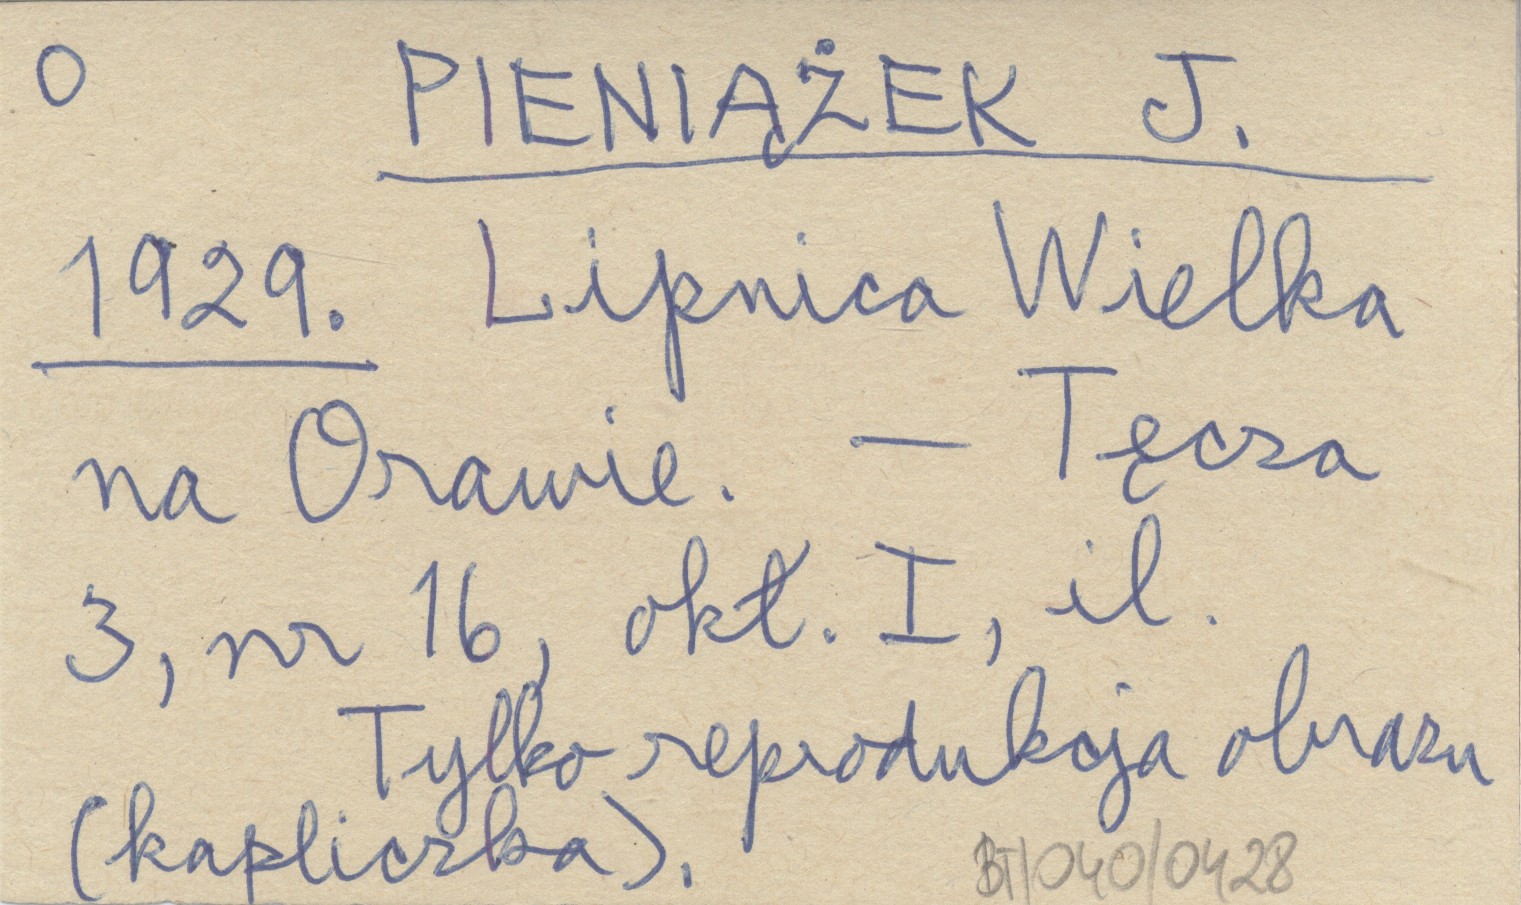 O PIENIĄŻEK J.
1929. Lipnica Wielka
na Orawie. — Tęcza
3, nr 16, okł. I, il.
Tylko reprodukcja obrazu
(kapliczka).
BT/040/0428